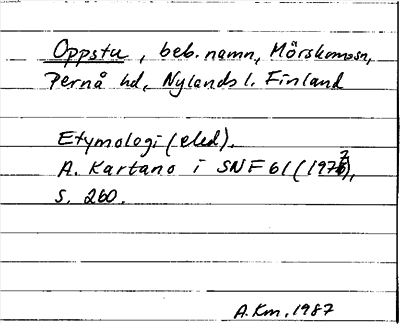 Oppstu, beb. namn, Mörskomssn,
Pernå hd, Nylands l. Finland
Etymologi (eled).
A. Kartano i SNF 61 (1973),
s. 260.
A.Km, 1987